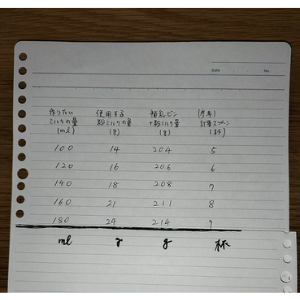 Date No.
作りたい 使用する 哺乳ビン (参考)
ミルクの量 粉ミルクの量 +粉ミルクの量 計量スプーン
(ml) (g) (g) (杯)
100 14 204 5
120 16 206 6
140 18 208 7
160 21 211 8
180 24 214 9
ml g g 杯